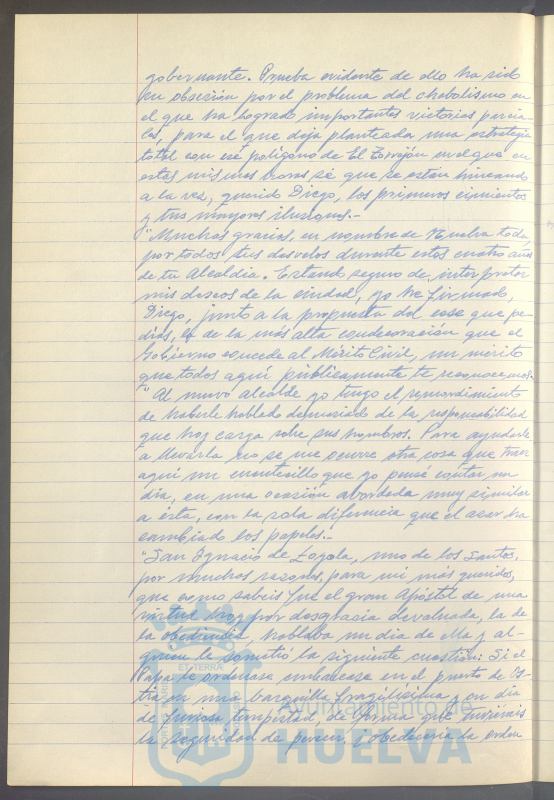 gobernante. Prueba evidente de ello ha sido
su obsesión por el problema del chabolismo en
el que ha logrado importantes victorias parcia-
les, para el que deja planteada una estrategia
total con ese polígono de El Torrejón en el que en
estas mismas horas sé que se están hincando
a la vez, querido Diego, los primeros cimientos
y tus mayores ilusiones.-
"Muchas gracias, en nombre de Huelva toda,
por todos tus desvelos durante estos cuatro años
de tu Alcaldía. Estando seguro de interpretar
mis deseos de la ciudad, yo he firmado,
Diego, junto a la propuesta del cese que pe-
días, la de la más alta condecoración que el
Gobierno concede al Mérito Civil, un mérito
que todos aquí públicamente te reconocemos.
"Al nuevo alcalde yo tengo el remordimiento
de haberle hablado demasiado de la responsabilidad
que hoy carga sobre sus hombros. Para ayudarle
a llevarla no se me ocurre otra cosa que traer
aquí un cuentecillo que yo pensé contar un
día, en una ocasión abordada muy similar
a ésta, con la sola diferencia que el azar ha
cambiado los papeles.-
"San Ignacio de Loyola, uno de los Santos,
por muchas razones, para mí más queridos,
que como sabéis fue el gran Apóstol de una
virtud hoy por desgracia devaluada, la de
la obediencia, hablaba un día de ella y al-
guien le sometió la siguiente cuestión: Si el
Papa le ordenase embarcase en el puerto de Os-
tia en una barquilla fragilísima y en día
de furiosa tempestad, de forma que tuviérais
la seguridad de perecer, ¿obedecería la orden
ET TERRA
Ayuntamiento de
HUELVA